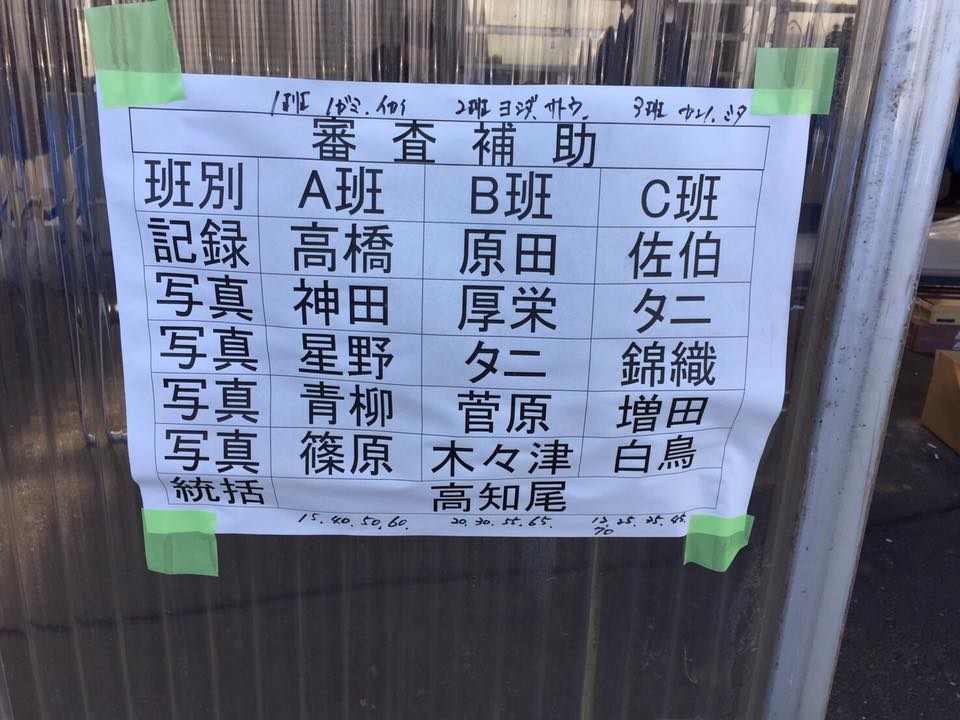 1班 イガミ.イカイ 2班 ヨシダ.サトウ. 3班 ミタ
審査補助
班別 A班 B班 C班
記録 高橋 原田 佐伯
写真 神田 厚栄 タニ
写真 星野 タニ 錦織
写真 青柳 菅原 増田
写真 篠原 木々津 白鳥
統括 高知尾
15.40.50.60. 20.30.55.65. 25.35.45.
70